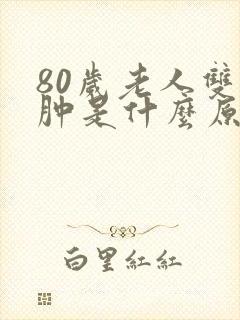 80歲老人雙
肿是什麼原
白里紅紅